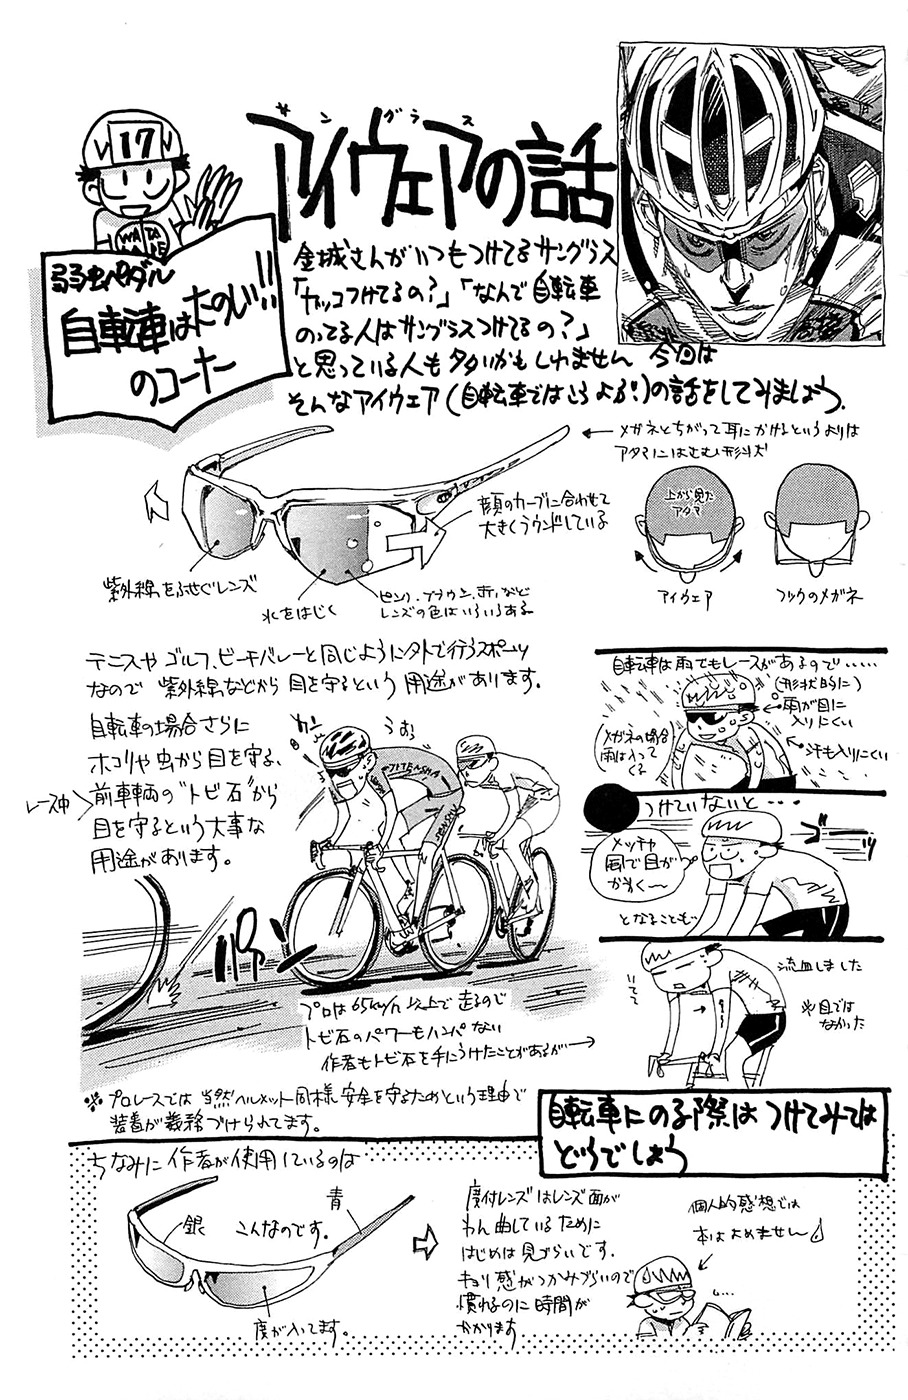 17
WATARE
弱虫ペダル
自転車はたのしい!!
のコーナー
サングラス
アイウェアの話
金城さんがいつもつけてるサングラス
「カッコつけてるの?」「なんで自転車
のってる人はサングラスつけてるの?」
と思っている人も多いかもしれません 今回は
そんなアイウェア(自転車ではこうよぶ!)の話をしてみましょう.
メガネとちがって耳にかけるというよりは
アタマにはさむ形状
顔のカーブに合わせて
大きくラウンドしている
紫外線をふせぐレンズ
水をはじく
ピンク、ブラウン、赤いなど
レンズの色はいろいろある
上から見た
アタマ
アイウェア
フツウのメガネ
テニスやゴルフ、ビーチバレーと同じように外で行うスポーツ
なので 紫外線などから目を守るという用途があります.
自転車の場合さらに
ホコリや虫から目を守る、
レース中
前車輌の"トビ石"から
目を守るという大事な
用途があります。
カン
うお
JITENSHA
SENSHU
パァン
プロは65km/h以上で走るので
トビ石のパワーもハンパない
作者もトビ石を手にうけたことがあるが→
※プロレースでは当然ヘルメット同様安全を守るためという理由で
装着が義務づけられてます。
自転車は雨でもレースがあるので‥‥‥
(形状的に)
雨が目に
入りにくい
メガネの場合
雨は入って
くる
汗も入りにくい
つけていないと‥‥
メッチャ
風で目が
かわく〜
ゴーッ
となることも
いてて
流血しました
※目では
なかった
自転車にのる際はつけてみては
どうでしょう
ちなみに作者が使用しているのは
銀
こんなのです。
青
度が入ってます。
度付レンズはレンズ面が
わん曲しているために
はじめは見づらいです.
キョリ感がつかみづらいので
慣れるのに時間が
かかります
個人的感想では
本はよめません